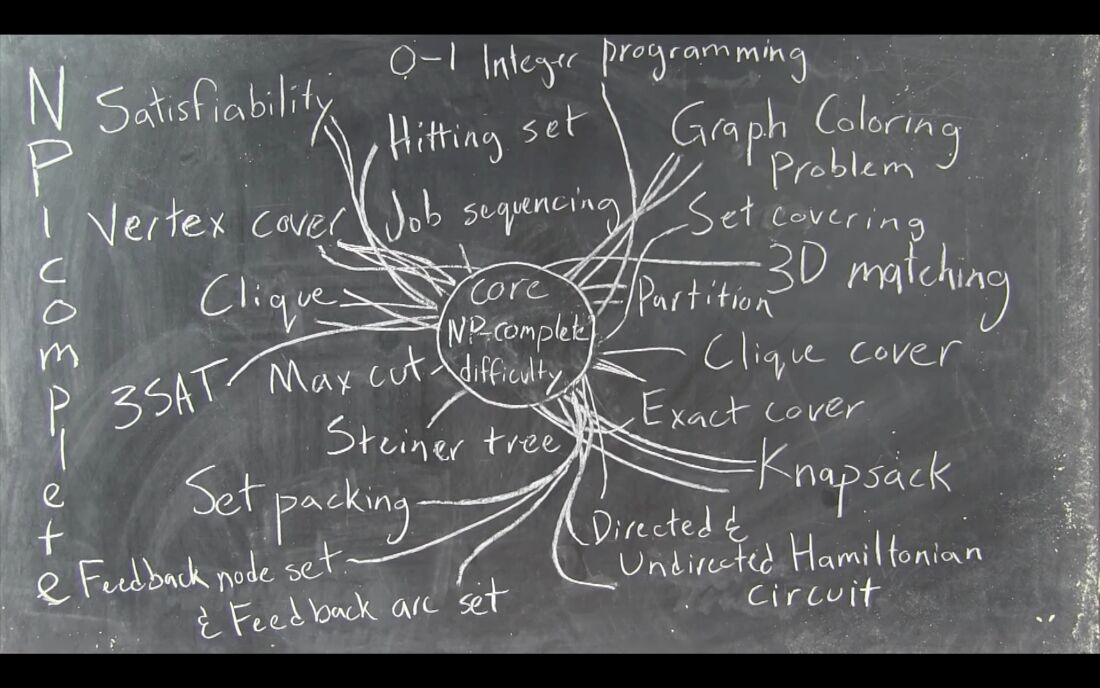 NP complete
0-1 Integer programming
Satisfiability
Hitting set
Graph Coloring
Problem
Vertex cover
Job sequencing
Set covering
3D matching
Clique
core
NP-complete
difficulty
Partition
3SAT
Max cut
Clique cover
Steiner tree
Exact cover
Set packing
Knapsack
Directed &
Undirected Hamiltonian
circuit
Feedback node set
& Feedback arc set